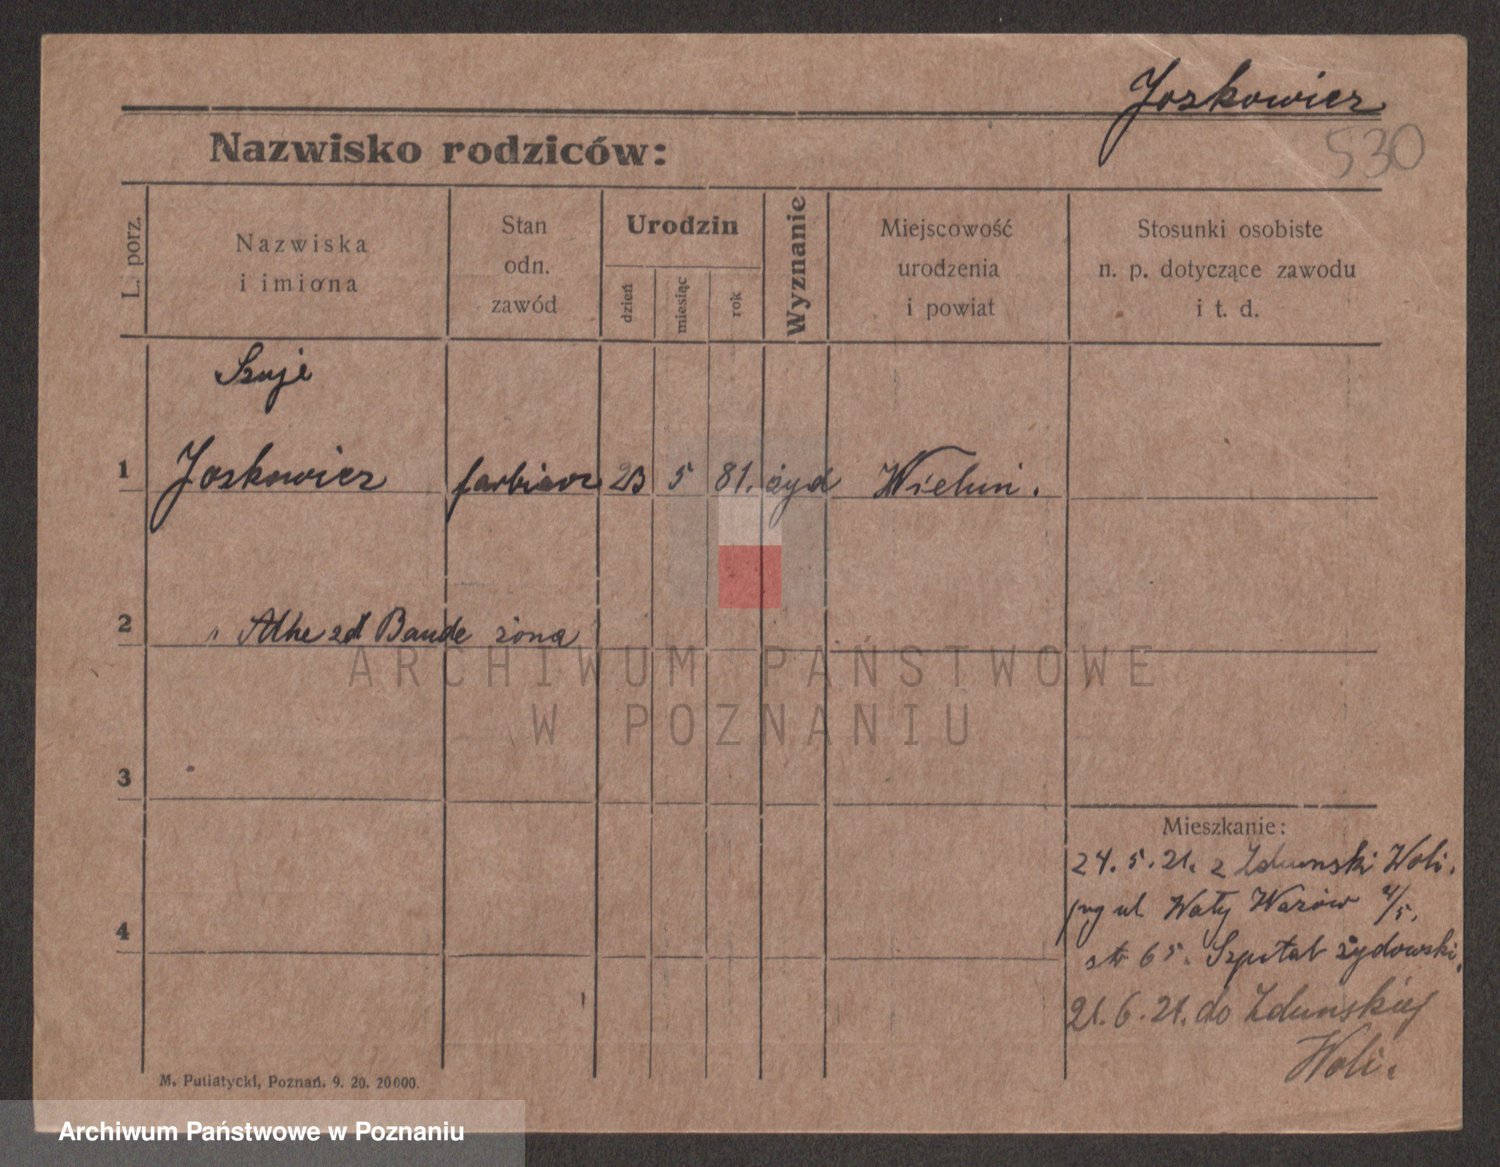 Joskowicz
530
Nazwisko rodziców:
L. porz.
Nazwiska
i imiona
Stan
odn.
zawód
Urodzin
dzień
miesiąc
rok
Wyznanie
Miejscowość
urodzenia
i powiat
Stosunki osobiste
n. p. dotyczące zawodu
i t. d.
Szuje
1 Joskowicz farbiarz 23 5 81. żyd Wieluń.
2 " zd Bande żona
3
Mieszkanie:
24. 5. 21. z Zdunski Woli.
ul Wały Wazów 4/5.
str 65. Szpital żydowski.
4
21. 6. 21. do Zdunskiej
Woli.
M. Putiatycki, Poznań. 9. 20. 20000.
ARCHIWUM PAŃSTWOWE
W POZNANIU
Archiwum Państwowe w Poznaniu